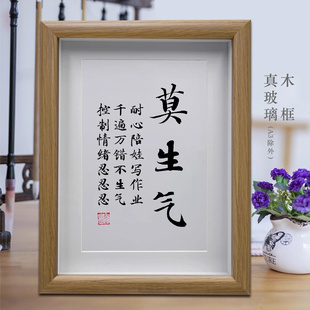 木框
真玻璃(A3除外)
莫生气
耐心陪娃写作业
千遍万错不生气
控制情绪忍忍忍